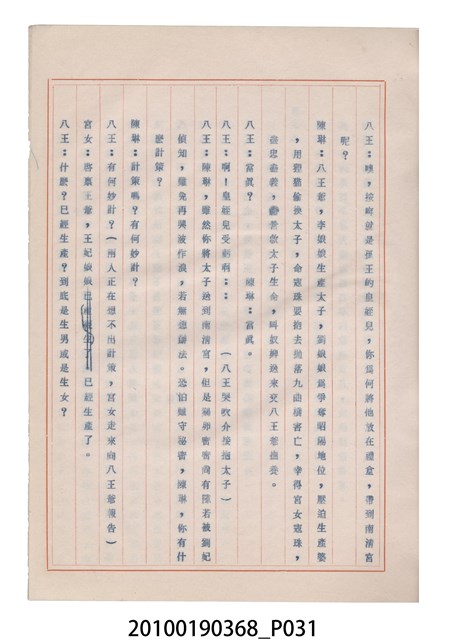 八王：噢，按呢就是孤王的皇姪兒，你為何將他放在禮盒，帶到南清宮
呢？
陳琳：八王爺，李娘娘生產太子，劉娘娘為爭奪昭陽地位，壓迫生產婆
，用狸貓偷換太子，命寇珠要抱去拋落九曲橋害亡，幸得宮女寇珠，
盡忠盡義，救太子生命，叫奴婢過來交八王爺撫養。
八王：當真？　陳琳：當真。
八王：啊！皇姪兒受虧啊：：（八王哭吹介接抱太子）
八王：陳琳，雖然你將太子過到南清宮，但是若被劉妃
偵知，難免再興波作浪，若無想辦法。恐怕難守祕密，陳琳，你有什
麼計策？
陳琳：計策嗎？有何妙計？
八王：有何妙計？（兩人正在想不出計策，宮女走來向八王爺報告）
宮女：啓稟王爺，王妃娘娘已經生產了。
八王：什麼？已經生產？到底是生男或是生女？
20100190368_P031